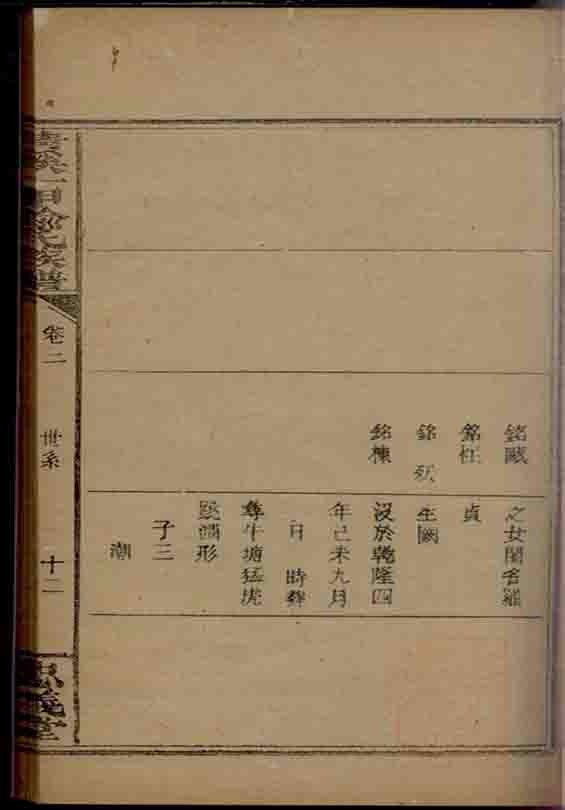 銘
銘
銘
銘棟
之女閨名羅
貞
生闕
沒於乾隆四
年己未九月
日 時葬
牛塘猛虎
跳澗形
子三
潮
氏族譜
卷二
世系
十二
義堂